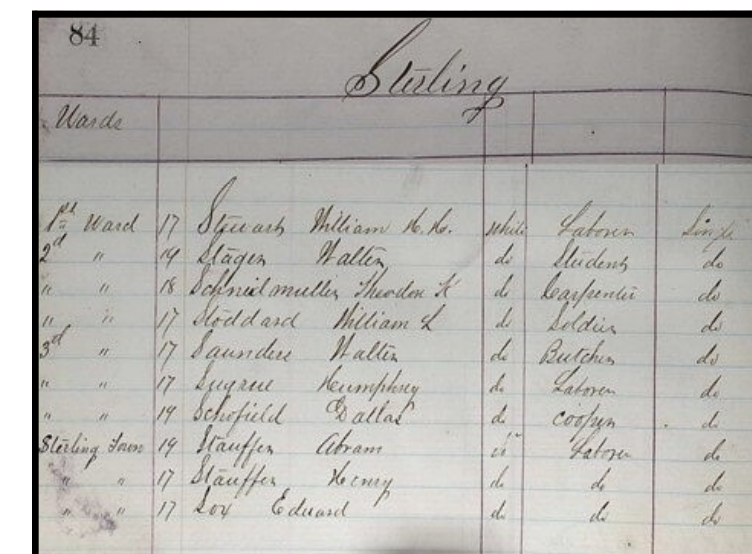 84
Sterling
Wards
1st Ward 17 Stewart William H. H. White Laborer Single
2d " 19 Stager Walter do Student do
" " 18 Schneidmuller Theodor K do Carpenter do
" " 17 Stoddard William L do Soldier do
3d " 17 Saunders Walter do Butcher do
" " 17 Sugrue Humphrey do Laborer do
" " 19 Schofield Dallas do Cooper do
Sterling Town 19 Stauffer Abram Laborer do
" " 17 Stauffer Henry do do do
" " 17 Sox Edward do do do